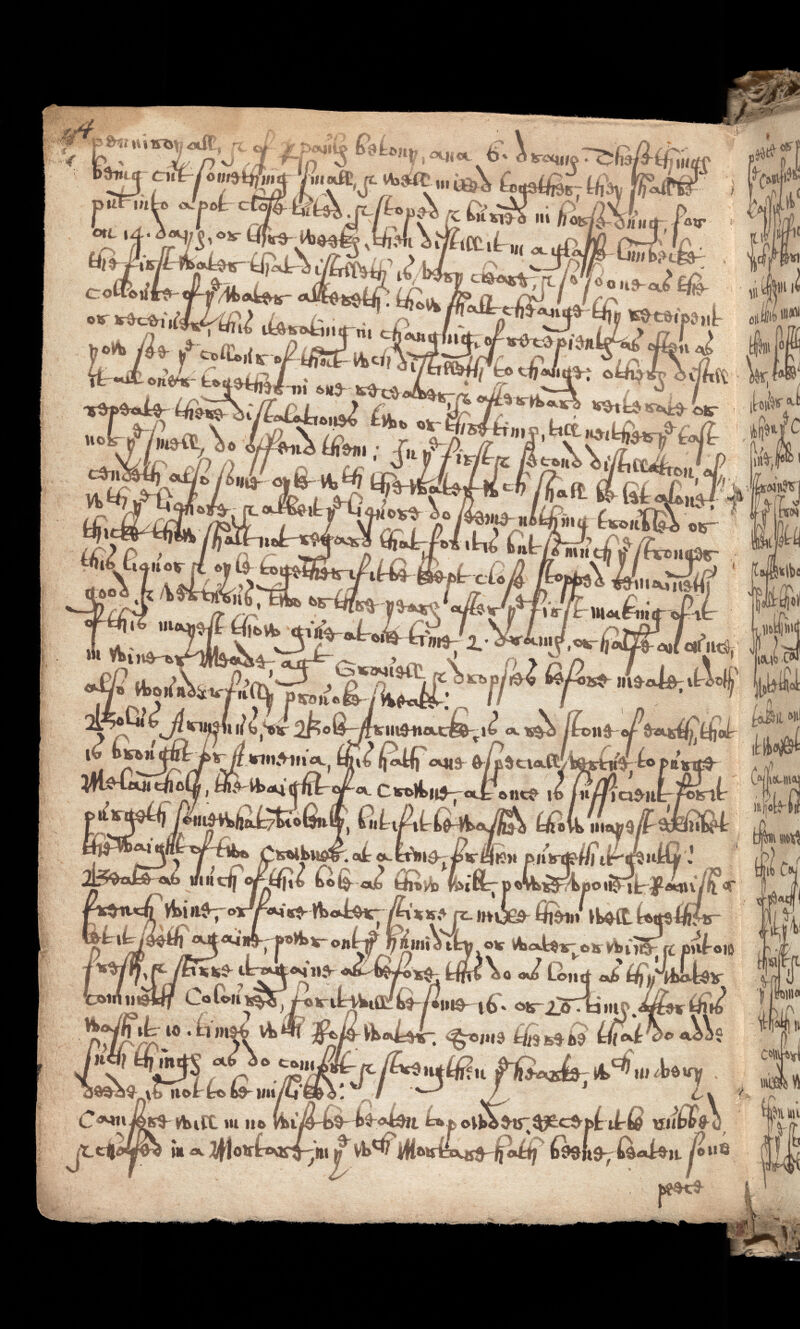 44
penniroyall, & of ye pauls betony, ana 6. drams. These things
being cut something small, & well mixed together, they shall be
put into a pot close luted & stoped & buried in horse dung, for
on 14. days, or three weeks, then distill it in a glasse limbecke
the first water that distilleth is very cleare, & so soone as the
collour of ye water altereth. thow shalt cheange thy recipient
or receiuer, this iterating in changing of recepients as often as
yow see ye collour of that wch distilleth to change: others distill
it all ouer together in one receauer, & afterward reiterate or
repeate these distilations two or three tims, till neither ye tast
nor ye smell, do offend them: In ye first & second distillation,
cendeth also some oyle wth the water wch shall be let alone
wth ye liquore, & albeit ye liquore do seeme nothing troubled or
thicke thow shalt not regard that for it is but so much ye stronger
this liquor & oyle together if it be kept close stopped remaineth
good & vertuous, two or three years after ye first making of it
of this mayest thow giue at one time, 2. drams, or halfe an ounce,
in wine or Meade, agt Grauell, & dropsies before meale, it doth
also wonnderfully prouoke sweate:
Bolus Armenus, or Bole Armenacke, is a red stone of earth, that
is brought frõ Armenia, this hath ane especiall vertue, to purge
Melancholy, the waight of a Crowne, at once is sufficient, for it
purgeth somewhat violently, but if it be washed thow mayest exhibet
the waight of two Crownes. at a time, for then purgeth it gently:
Beate as much of this bole as thow will, powre vpon it Renish or
french wine, or faire water, stirre & mixe them well together
let it seeth againe, powr only ye humidity, or water, or wine, & put on
fresh, & stirre it againe as before, this do as long as thy water
commeth Coloured, for it will be some 16. or 20. tims. after this
wash it 10. times wth Rose water. Some there be that do adde
such things as do comfort & strengthen ye hearte, wch in very
deede, is not to be misliked:
Camfere will in no wise be beaten to powder, except it be rubbed,
& chafed in a Mortare, in ye wch Mortare hath beene, beaten some
peece